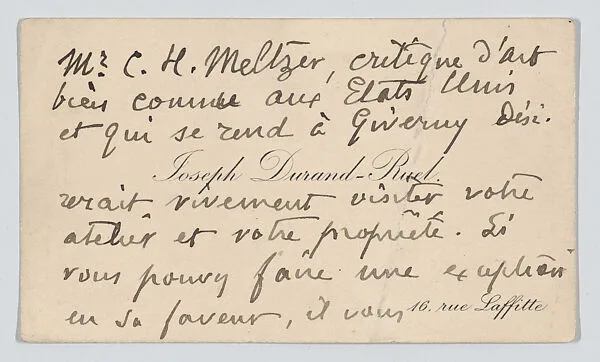 Mr. C. H. Meltzer, critique d'art
bien connu aux Etats Unis
et qui se rend à Giverny dési-
Joseph Durand-Ruel.
rerait vivement visiter votre
atelier et votre propriété. Si
vous pouvez faire une exception
en sa faveur, il vous
16. rue Laffitte